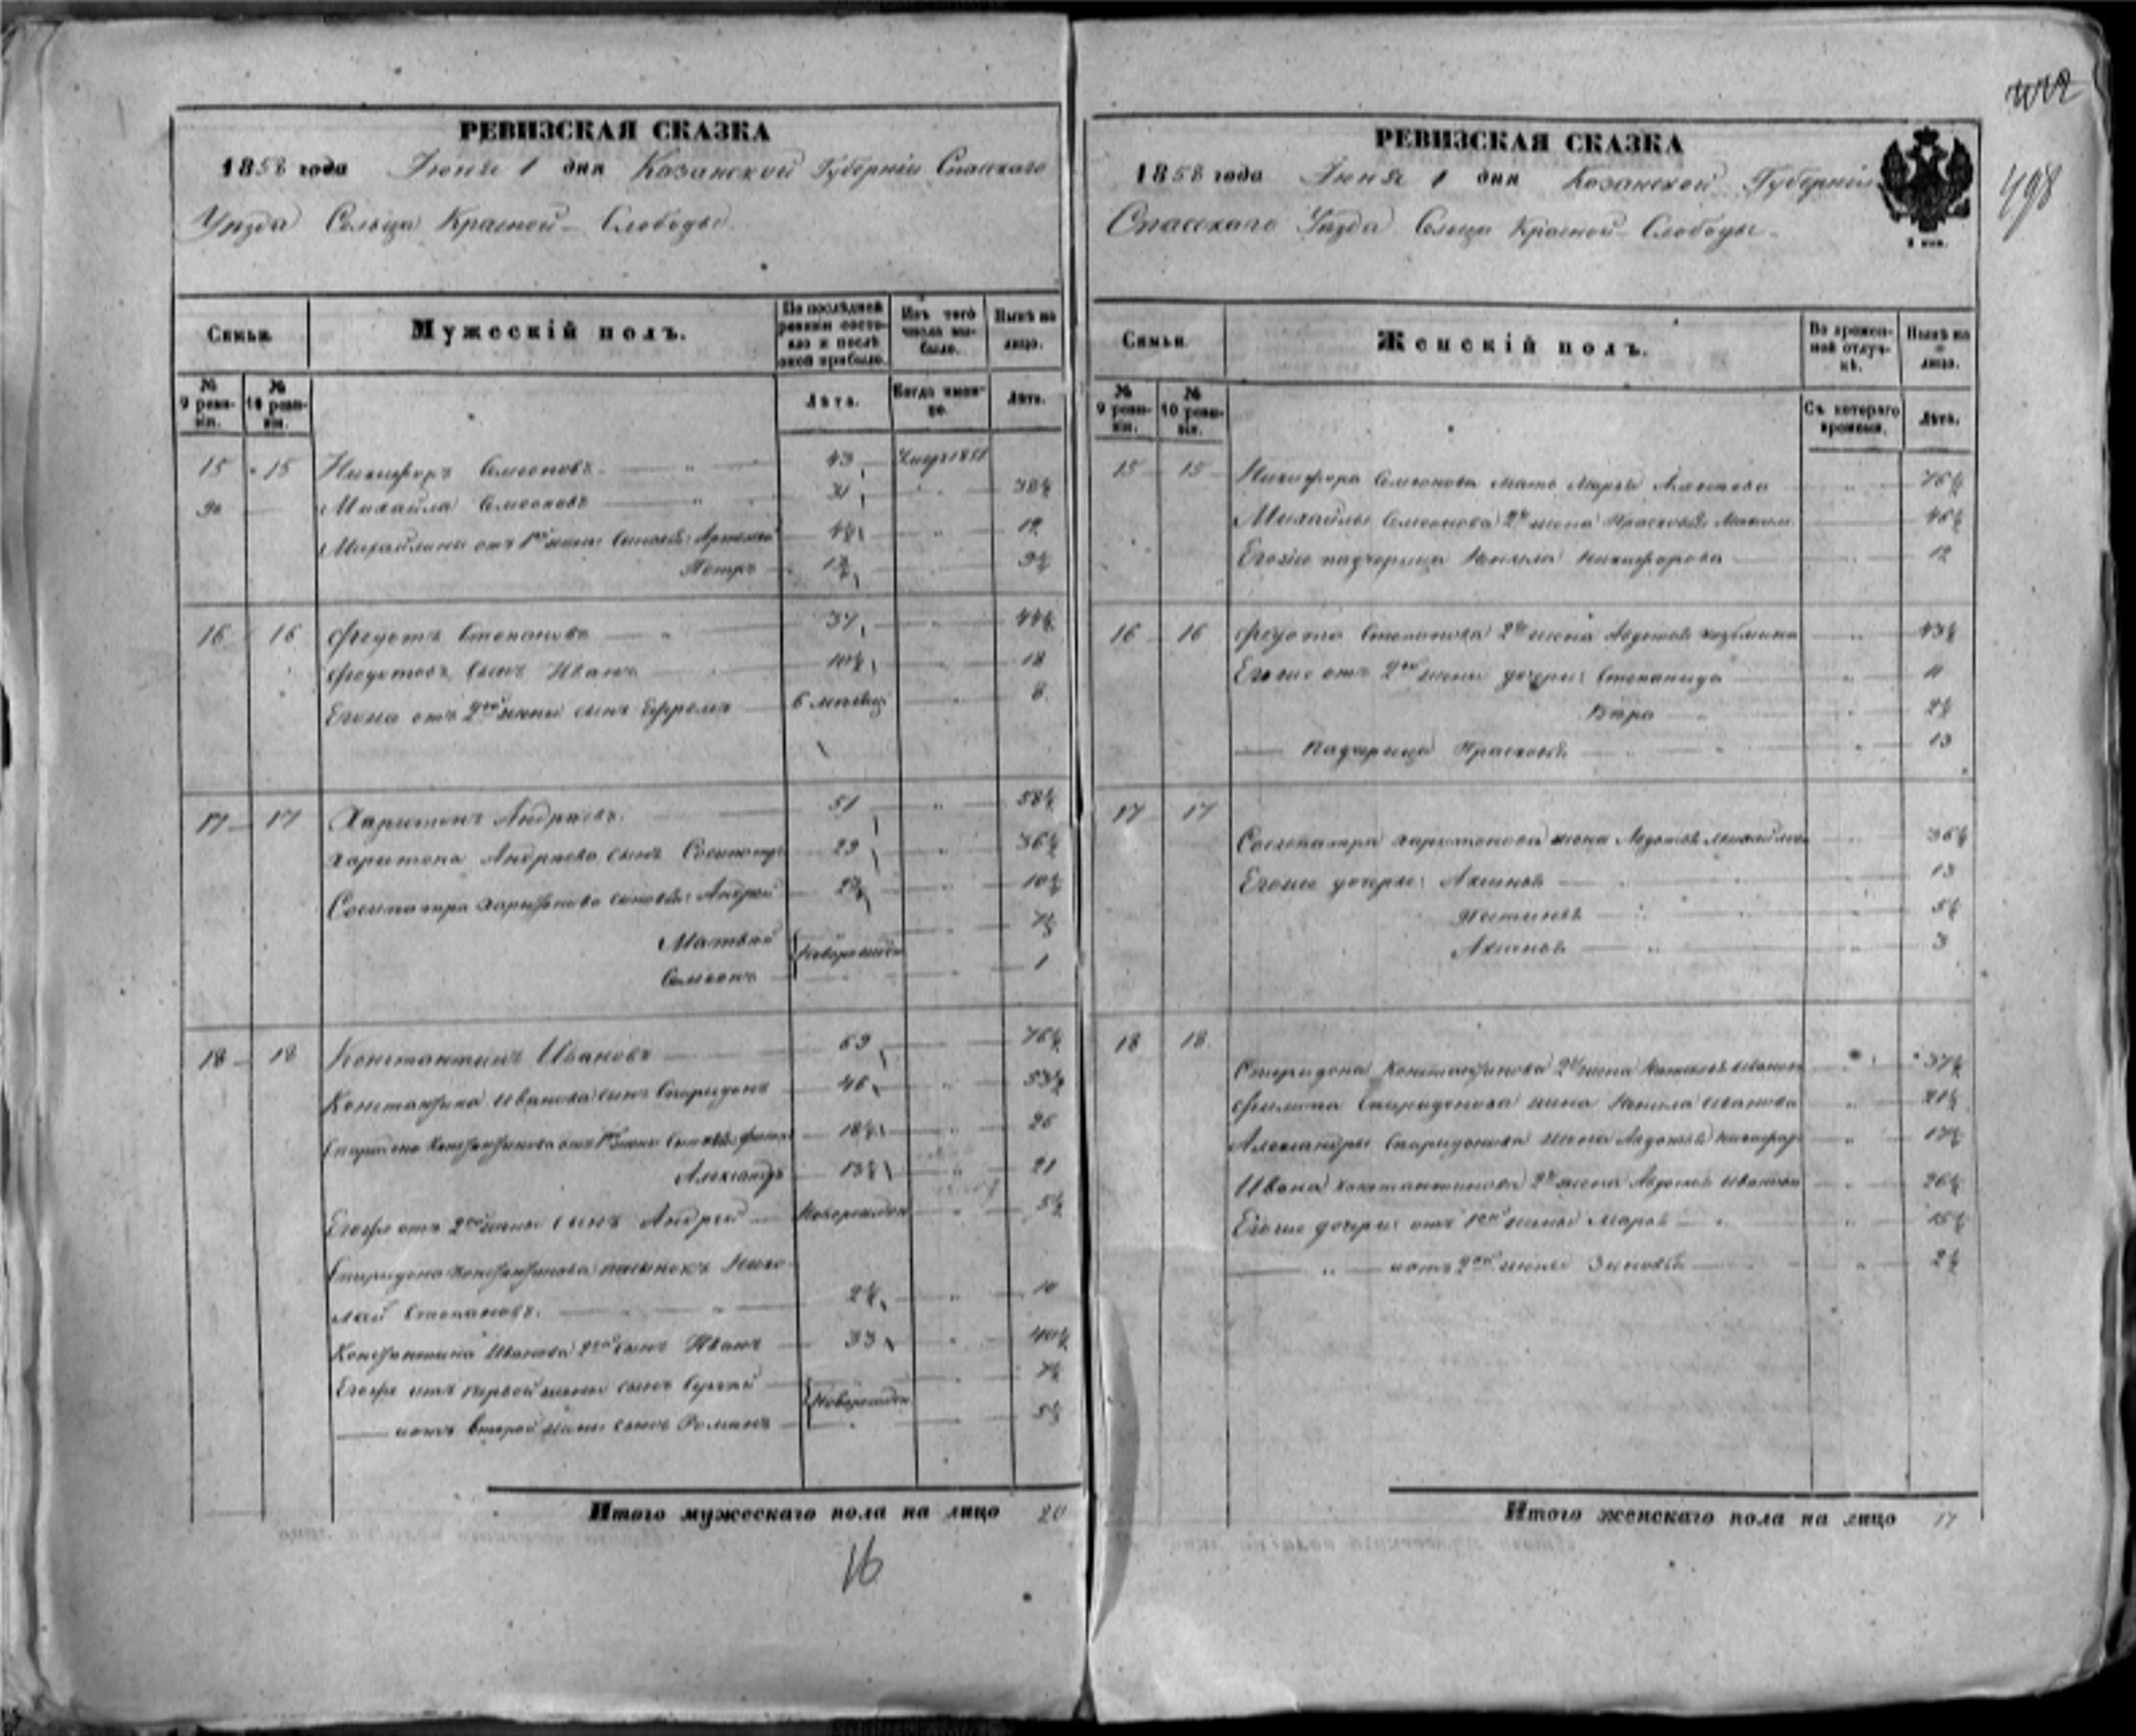 РЕВИЗСКАЯ СКАЗКА
1858 года Іюня 1 дня Казанской Губерніи Спасскаго
Уѣзда Сельца Красной-Слободы.
Семьи. Мужескій полъ. По послѣдней ревизіи состояло и послѣ оной прибыло. Изъ того числа выбыло. Нынѣ на лицо.
№ 9 ревизіи. № 10 ревизіи. Лѣта. Когда именно. Лѣта.
15 15 Никифоръ Семеновъ 43 Умеръ 1851
Михайла Семеновъ 31 38½
Михайлины от 1й жены сыновья Артемій 12
Петръ 9½
16 16 Федотъ Степановъ 37 44½
Федотовъ сынъ Иванъ 10½ 18
Егоже отъ 2ой жены сынъ Ефремъ 6 месяц 8
17 17 Харитонъ Андреевъ 51 58½
Харитона Андреева сынъ Сосипатръ 29 36½
Сосипатра Харитонова сыновья Андрей 10½
Матвей Новорожден
Семенъ 1
18 18 Константинъ Ивановъ 69 76½
Константина Иванова сынъ Спиридонъ 46 53½
Спиридона Константинова отъ 1й жены сыновья 18½ 26
Александръ 13½ 21
Егоже отъ 2ой жены сынъ Андрей Новорожден 5½
Спиридона Константинова пасынокъ Нико
лай Степановъ. 10
Константина Иванова 2ой сынъ Иванъ 33 40½
Егоже отъ первой жены сынъ Сергей 7½
Новорожден
отъ второй жены сынъ Романъ 5½
Итого мужескаго пола на лицо 20
16
498
РЕВИЗСКАЯ СКАЗКА
1858 года Іюня 1 дня Казанской Губерніи
Спасскаго Уѣзда Сельца Красной-Слободы.
Семьи. Женскій полъ. Во временной отлучкѣ. Нынѣ на лицо.
№ 9 ревизіи. № 10 ревизіи. Съ котораго времени. Лѣта.
15 15 Никифора Семенова мать Марья 76½
Михайлы Семенова 2я жена Прасковья 46½
Егоже падчерица Ненила Никифорова 12
16 16 Федота Степанова 2я жена Авдотья Козьмина 43½
Егоже отъ 2ой жены дочери: Степанида 11
Вѣра 2½
Падчерица Прасковья 13
17 17
Сосипатра Харитонова жена Авдотья Михайлова 36½
Егоже дочери: Аксинья 13
Устинья 5½
Аксинья 3
18 18
Спиридона Константинова 2я жена Наталья Иванова 37½
Филипа Спиридонова жена Ненила Иванова 21½
Александры Спиридонова жена Авдотья Никифор
Ивана Константинова 2я жена Авдотья Иванова 26½
Егоже дочери: отъ 1ой жены Марья 15½
отъ 2ой жены Зиновья 2½
Итого женскаго пола на лицо 17